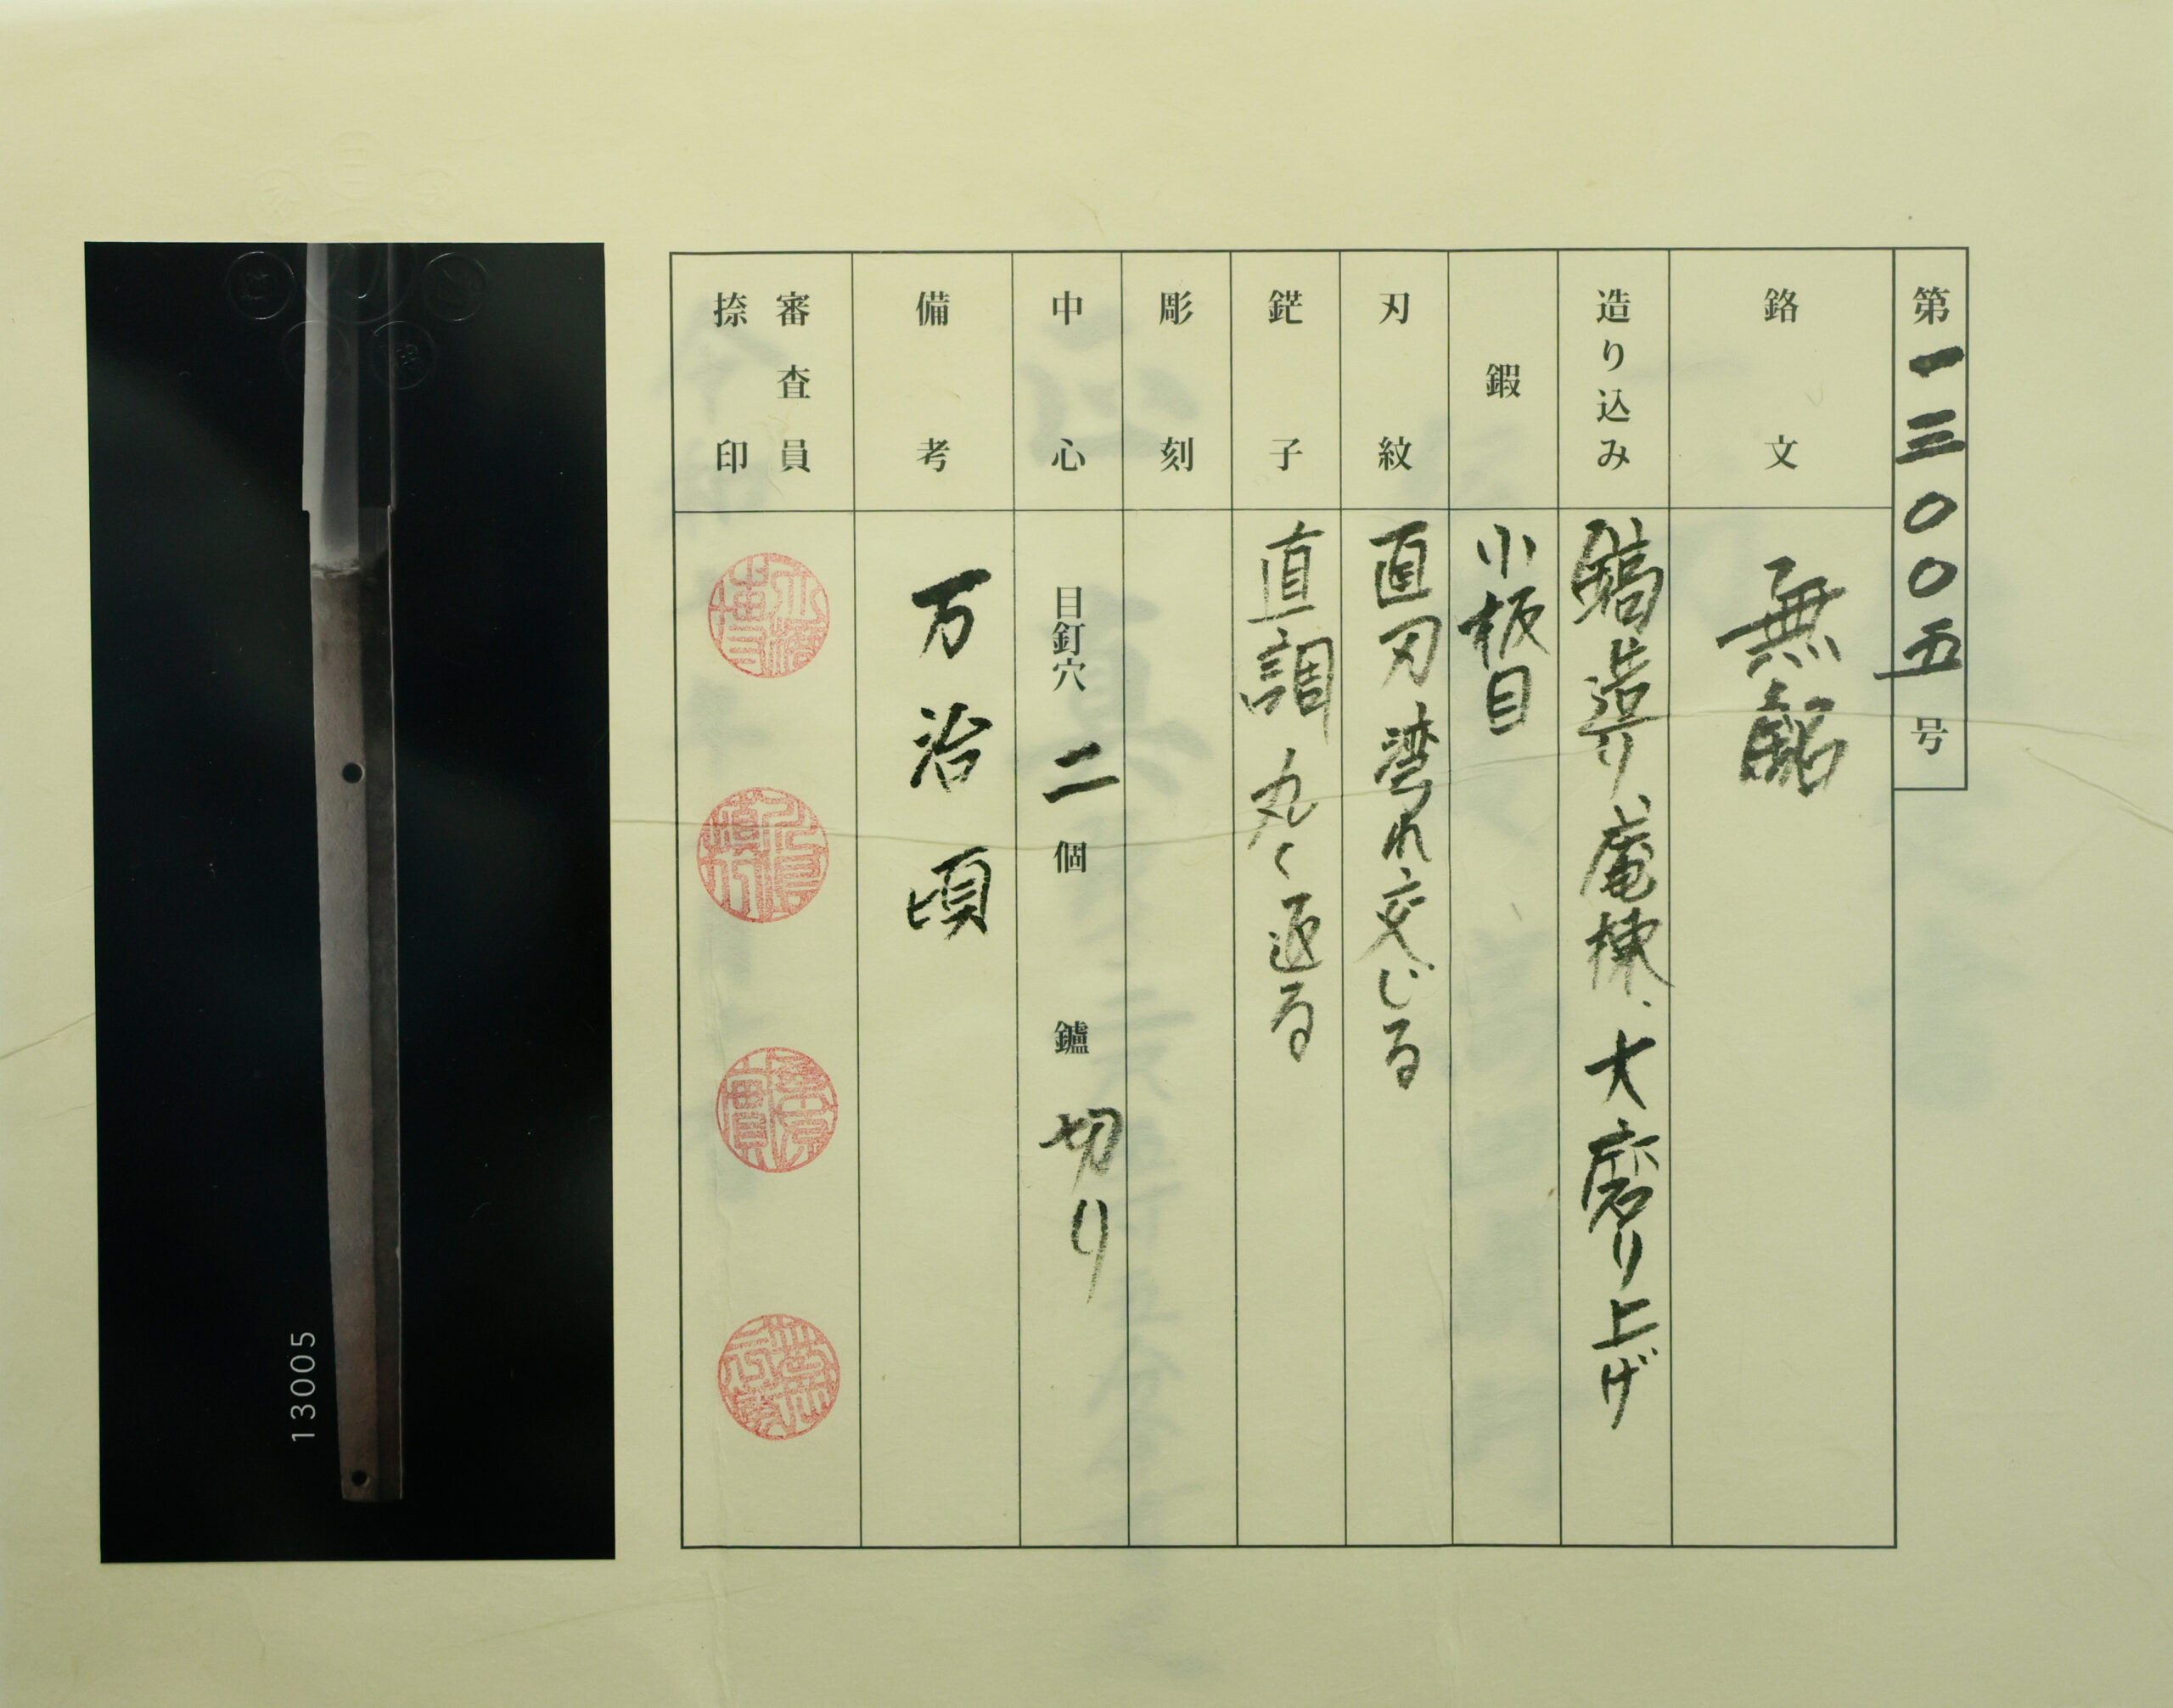 第一三〇〇五号
銘文 無銘
造り込み 鎬造り、庵棟、大磨り上げ
鍜 小板目
刃紋 直刃湾れ交じる
鋩子 直調丸く返る
彫刻
中心 目釘穴 二 個 鑢 切り
備考 万治頃
審査員
捺印
13005